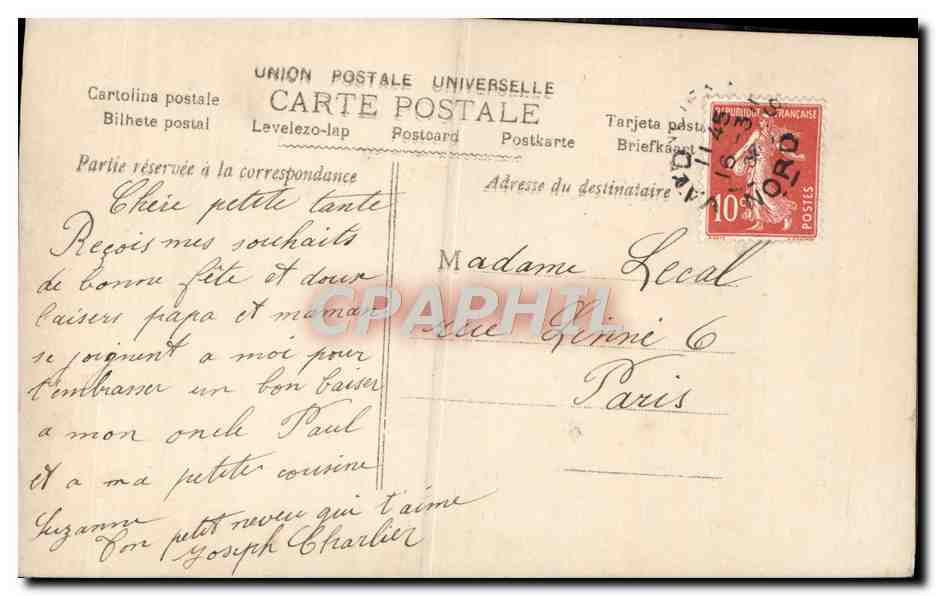 UNION POSTALE UNIVERSELLE
CARTE POSTALE
Cartolina postale
Bilhete postal
Levelezo-lap
Postcard
Postkarte
Tarjeta postal
Briefkaart
Partie réservée à la correspondance
Adresse du destinataire
RÉPUBLIQUE FRANÇAISE
10c
POSTES
11 45
16 - 3
NORD
Chère petite tante
Reçois mes souhaits
de bonne fête et doux
baisers papa et maman
se joignent a moi pour
t'embrasser un bon baiser
a mon oncle Paul
et a ma petite cousine
Suzanne
Ton petit neveu qui t'aime
Joseph Charlier
Madame Lecal
rue Linné 6
Paris
CPAPHIL